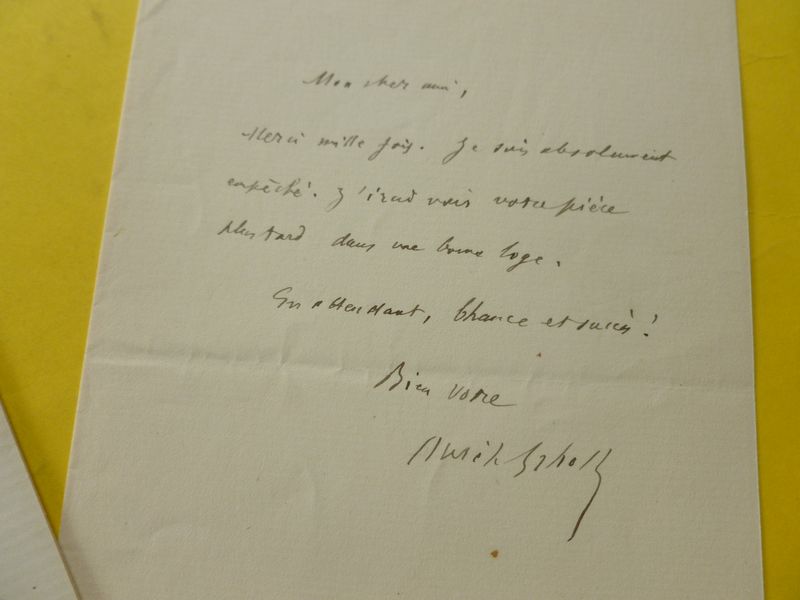 Mon cher ami,
Merci mille fois. Je suis absolument
empêché. J'irai voir votre pièce
plus tard dans une bonne loge.
En attendant, chance et succès!
Bien votre
Aurélien Scholl